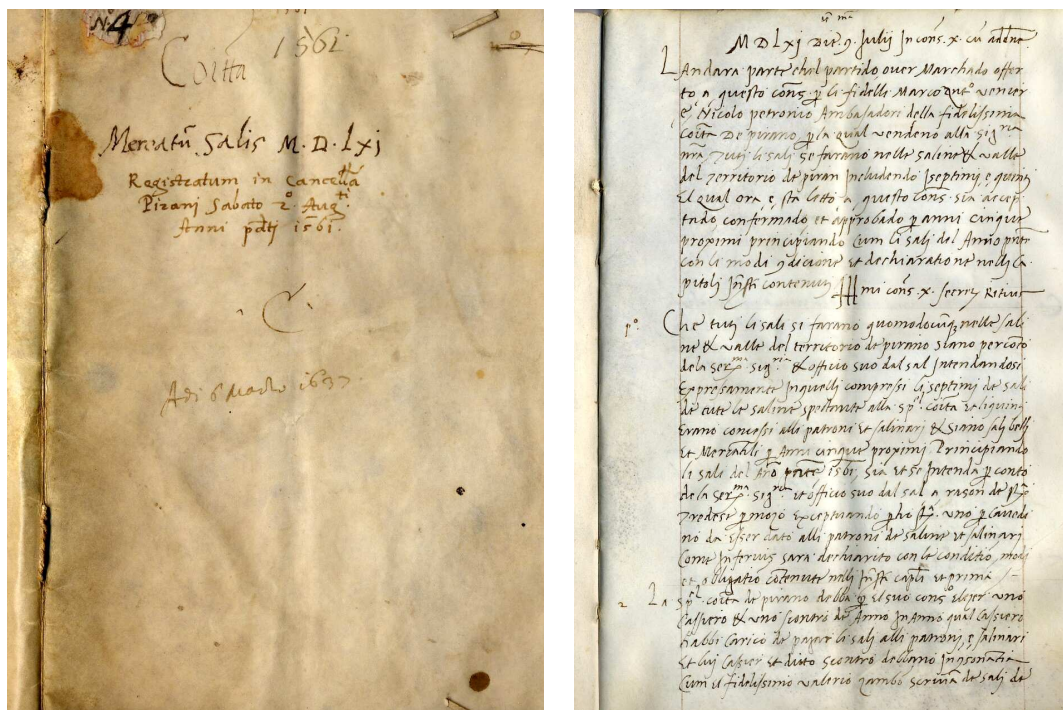 N.º 4
1561
Coitta
Mercatũ Salis M. D. Lxj
Registratum in Cancellª
Pirani Sabato 2º Augti
Anni pdti 1561.
C
Adi 6 Marzo 1637
M D Lxj Die 9. Julij In cons. x. cũ addne
L Andara parte chel partido, over Marchado offer
to a questo cons. p li fideli Marco Antº venier
e Nicolo petronio Ambasadori della fidelissima
Coitª De pirano, p la qual vendeno alla Sigria
nrã, Tuti li sali se farano nelle saline & valle
del territorio de piran includendo i septimi, e quinti
El qual ora e stà letto a questo cons. sia accep
tado confermado et approbado p anni cinque
proximi principiando cum li sali del Anno pnte
con li modi 9dicione et dechiaratione nelli Ca
pitoli Infrti contenuti
mi cons. x. secret
pº. Che tuti li sali si farano quomodocunq nelle sali
ne & valle del territorio de pirano siano per conto
dela Serma. Sigria. & officio suo dal sal Intendandosi
Expresamente In quelli compressi li septimi de sali
de tute le saline spectante alla Spl. coitª et li quinti
Erano concessi alli patroni et salinari & siano sali belli
et Mercatili p Anni cinque proximi Principiando
li sali del Año pnte 1561, sia et se Intenda p conto
dela Serma. Sigria. et officio suo dal sal a rason de
Tredese p mozo exceptuando uno p Cavedi
no da esser dato alli patroni de saline et salinari
Come Inferius sara dechiarito con le conditio, modi
et obligatio cõtenute nelli Infrti capli et prima
2 La Spl. coitª de pirano debba p el suo cons. eleger uno
Cassiero & uno scontro de Anno In Anno qual Cassiero
habbi carico de pagar li sali alli patroni, e salinari
Et lui Cassier et ditto scontro debbano
Cum il fidelissimo valerio zambo scrivã de sali de